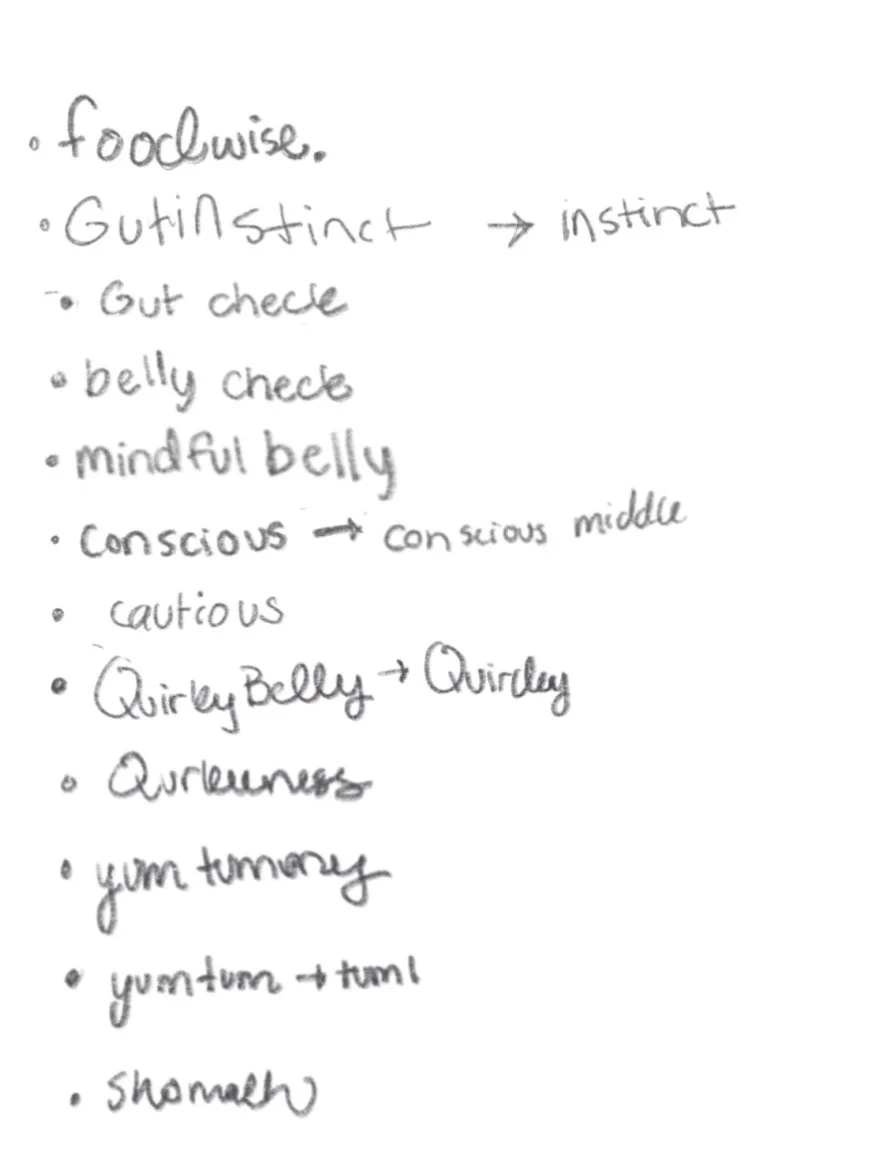 • foodwise.
• Gutinstinct → instinct
• Gut check
• belly check
• mindful belly
• conscious → conscious middle
• cautious
• QuirkyBelly → Quirky
•
• yum tummy
• yumtum → tum
•